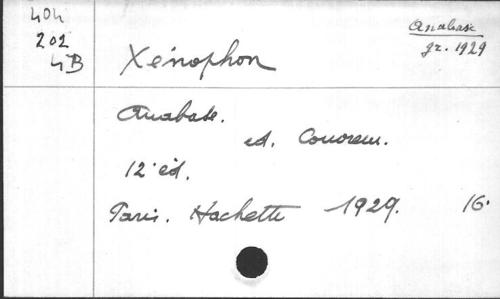 404
202
4B
Anabase
gr. 1929
Xénophon
Anabase.
ed. Couvreur.
12 éd.
Paris. Hachette 1929. 16.